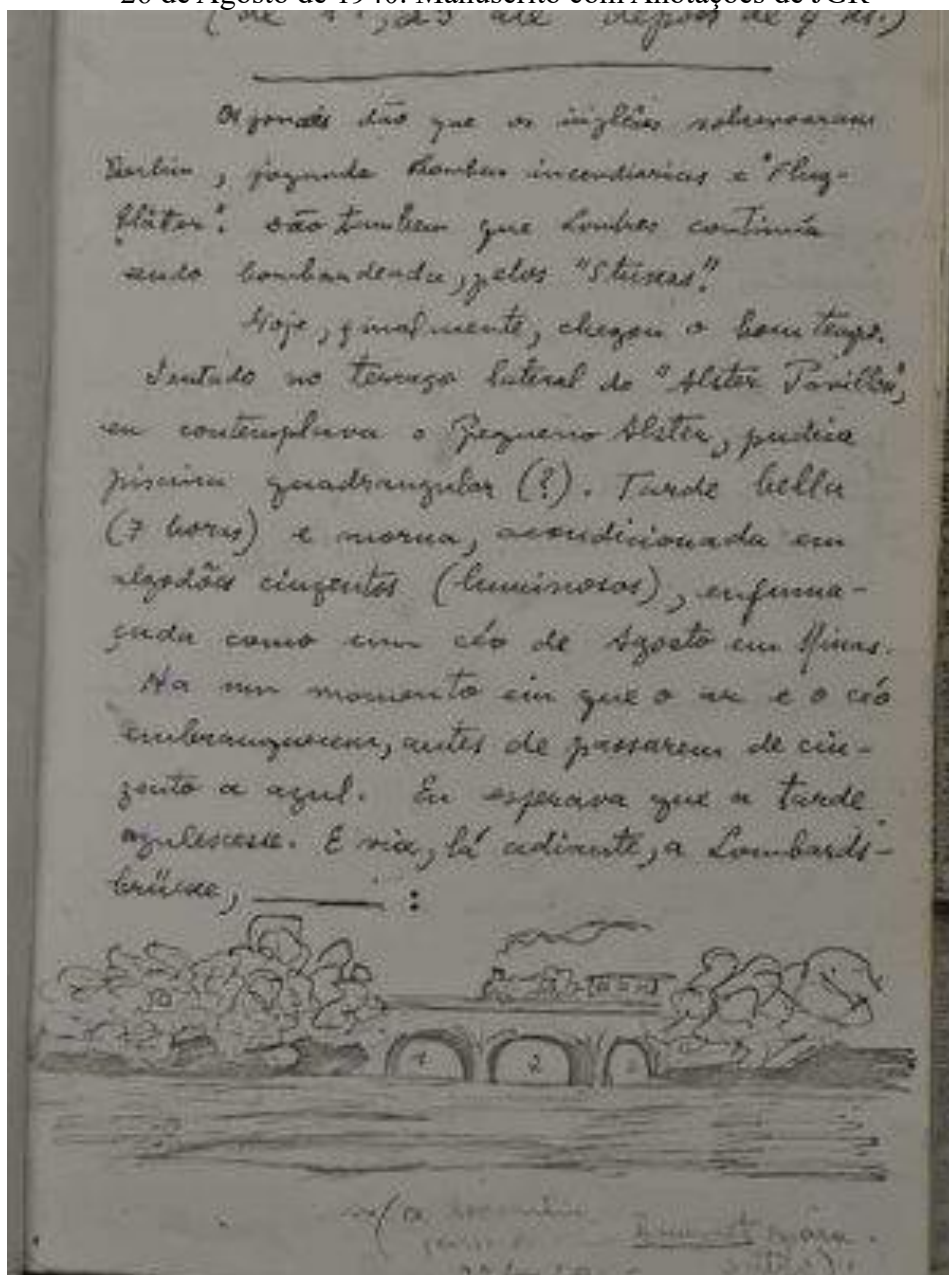 26 de Agosto de 1940. Manuscrito com Anotações de JGR
até depois de 4 hs.)
Os jornais dão que os inglêses sobrevoaram
Berlim, jogando bombas incendiarias e "Flug-
blätter". Dão tambem que Londres continúa
sendo bombardeada, pelos "Stukas".
Hoje, finalmente, chegou o bom tempo.
Sentado no terraço lateral do "Alster Pavillon",
eu contemplava o Pequeno Alster, pudica
piscina quadrangular (?). Tarde bella
(7 horas) e morna, acondicionada em
algodões cinzentos (luminosos), enfuma-
çada como um céo de Agosto em Minas.
Ha um momento em que o ar e o céo
embranquecem, antes de passarem de cin-
zento a azul. Eu esperava que a tarde
azulescesse. E via, lá adiante, a Lombards-
brücke, :
1 2 3